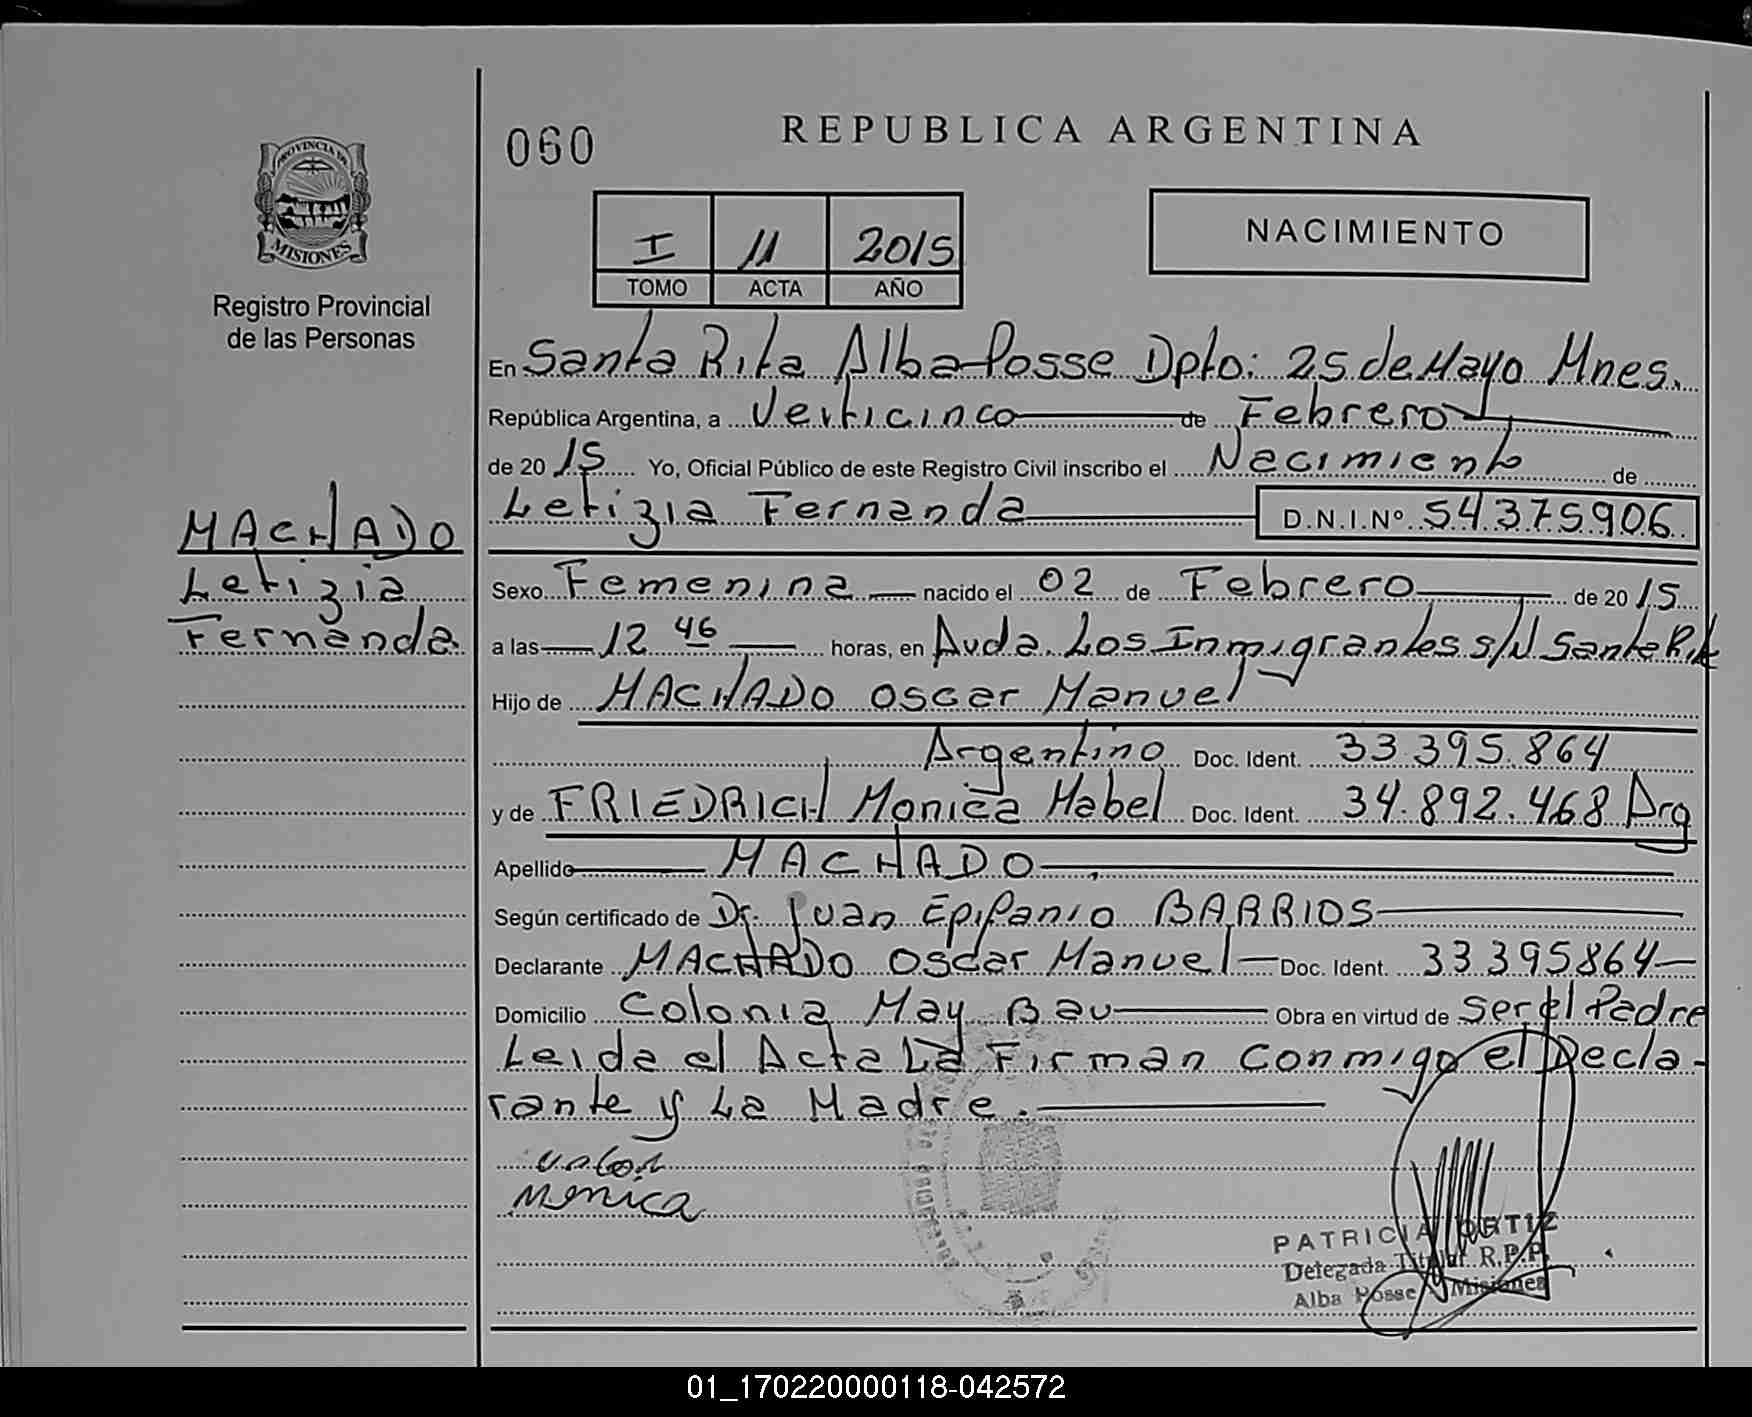 060
REPUBLICA ARGENTINA
PROVINCIA DE
MISIONES
Registro Provincial
de las Personas
I 11 2015
TOMO ACTA AÑO
NACIMIENTO
En Santa Rita Alba Posse Dpto: 25 de Mayo Mnes.
República Argentina, a Veiticinco de Febrero
de 2015 Yo, Oficial Público de este Registro Civil inscribo el Nacimiento de
Letizia Fernanda D.N.I.Nº 54375906
MACHADO
Letizia
Fernanda
Sexo Femenina nacido el 02 de Febrero de 2015
a las 12 46 horas, en Avda. Los Inmigrantes s/N Santa Rita
Hijo de MACHADO Oscar Manuel
Argentino Doc. Ident. 33.395.864
y de FRIEDRICH Monica Mabel Doc. Ident. 34.892.468 Arg
Apellido MACHADO
Según certificado de Dr. Juan Epifanio BARRIOS
Declarante MACHADO Oscar Manuel Doc. Ident. 33395864
Domicilio Colonia May Bau Obra en virtud de Ser el Padre
Leida el Acta La Firman Conmigo el Decla-
rante y La Madre.
Monica
PATRICIA ORTIZ
Delegada Titular R.P.P.
Alba Posse Misiones
01_170220000118-042572